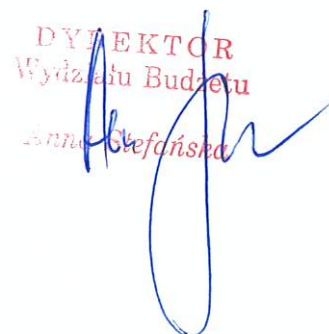 DYREKTOR
Wydziału Budżetu
Anna Stefańska